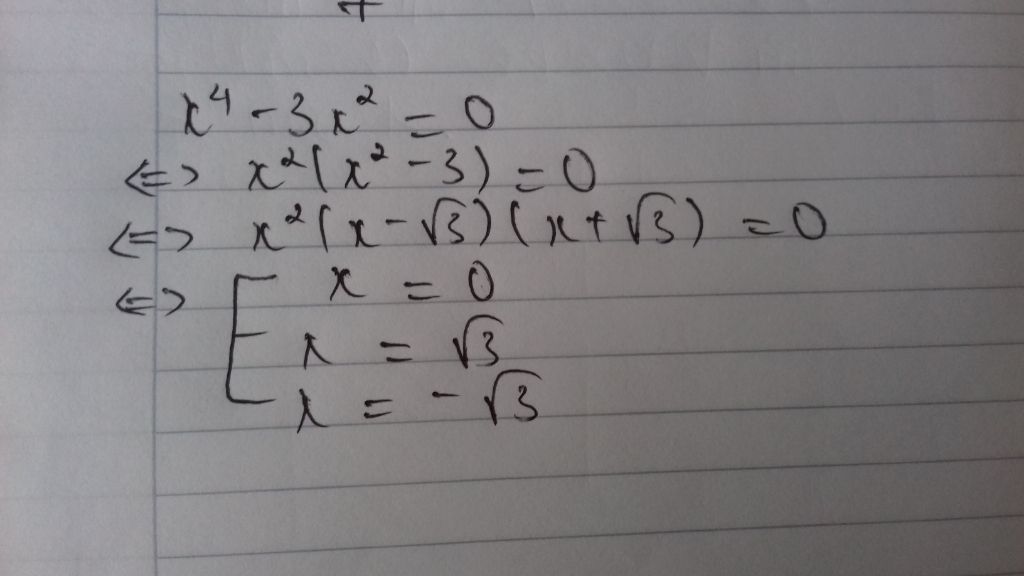 x⁴ - 3x² = 0
<=> x²(x² - 3) = 0
<=> x²(x - √3)(x + √3) = 0
<=> [ x = 0
x = √3
x = -√3